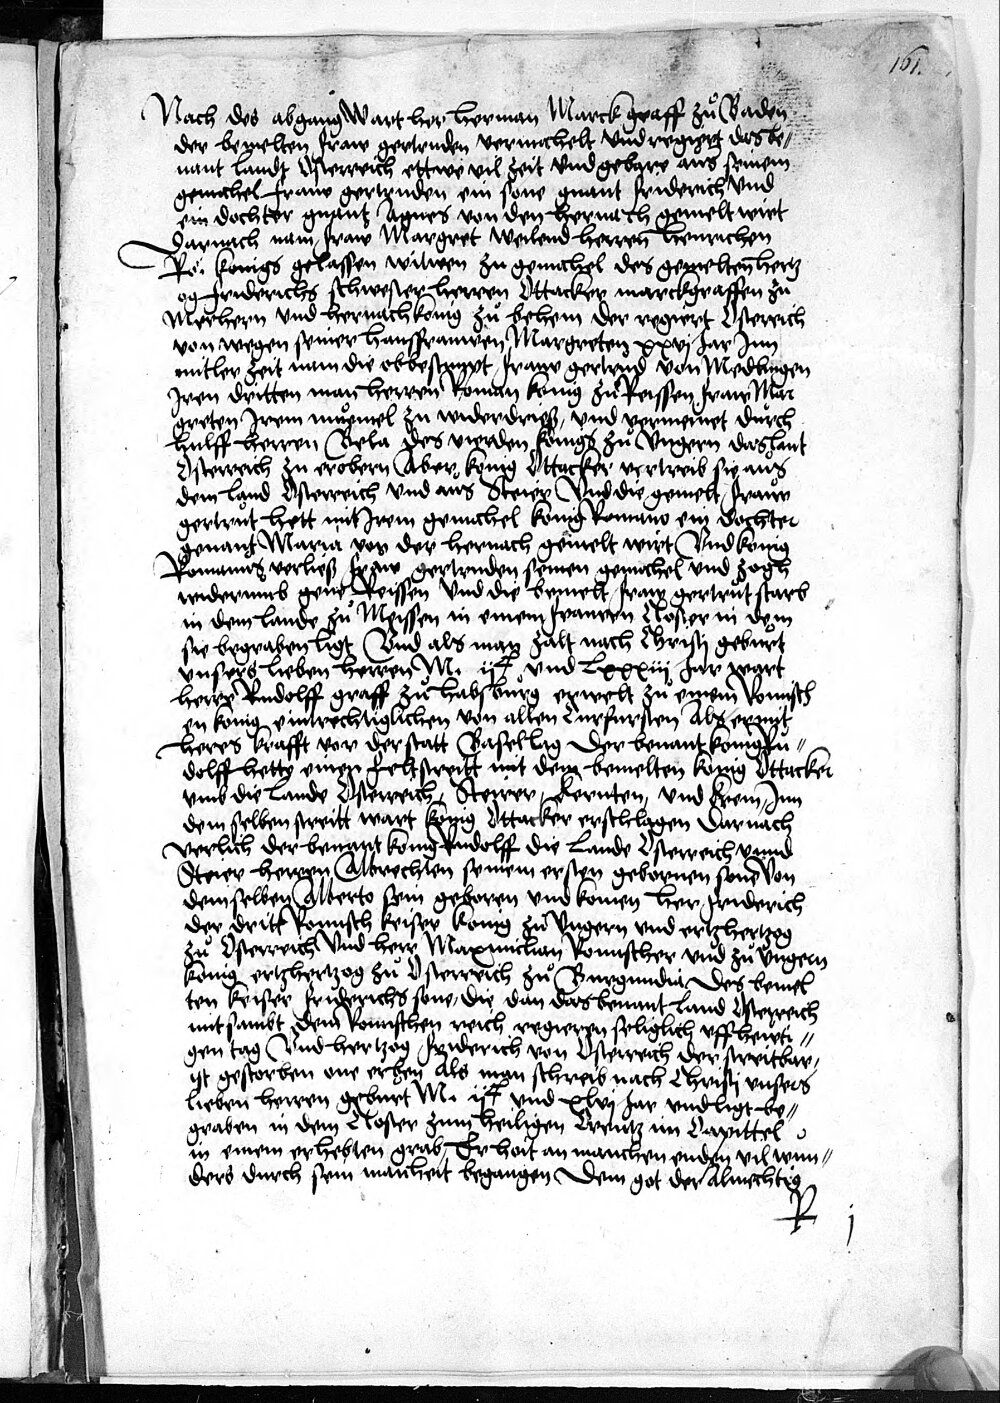 161.
Nach des abgang Wart her herman Marckgraff zů Baden
der bemelten fraw gertruden vermachelt Vnd regiert das be„
nant landt Osterreich ettwe vil zeit Vnd gebare aus seinem
gemachel fraw gertruden ein sone gnant friderich Vnd
ein dochter gnant Agnes von den hernach gemelt wirt
Darnach nam fraw Margret weilend herren henrichen
Rö. konigs gelassen witwen zu gemachel des gemelten hertz
og friderichs schwester herren Ottacker marckgraffen zu
Merhern vnd hernach konig zů behem der regiert Osterreich
von wegen seiner hausfrauwen Margreten xxvj Jar Inn
mitler zeit nam die obbestimpt fraw gertrud von Medlingen
Iren dritten man herren Roman konig zů Reissen fraw Mar
greten Irem můemel zu widerdrieß, vnd vermeinet durch
hulff herren Bela des vierden konigs zů Vngern das lant
Osterreich zu erobern Aber konig Ottacker vertreib sie aus
dem land Osterreich vnd aus Steier Vnd die gemelt frauw
gertrut hett mit Irem gemachel konig Romano ein dochter
genant Maria von der hernach gemelt wirt Vnd konig
Romanus verließ fraw gertruden seinen gemachel vnd zogh
widerumb gene Reissen Vnd die bemelt fraw gertrut starb
in dem lande zů Meissen in einem frauwen Closter in dem
sie begraben ligt Vnd als man zalt nach Christi geburt
vnsers lieben herren M. ijC vnd Lxxxiij Jar wart
herre Rudolff graff zů habsburg erwelt zu einem Romisch
en konig eintrechtiglichen von allen Curfursten Als er mit
heres krafft vor der statt Basel lag Der benant konig Ru„
dolff hette einen feltstreitt mit dem bemelten konig Ottacker
vmb die lande Osterreich, Steirer, kernten, vnd krein, Inn
dem selben streitt wart konig Ottacker erschlagen Darnach
verlich der benant konig Rudolff die lande Osterreich vnnd
Steier herren Albrechten seinem ersten gebornen sone Von
dem selben Alberto sein geboren vnd komen her friderich
der dritt Romisch keiser konig zů Vngern vnd ertzhertzog
zů Osterreich Vnd herr Maximilian Romischer vnd zů Vngern
konig ertzhertzog zů Osterreich zů Burgundia Des bemel
ten keiser friderichs sone, die dan das benant land Osterreich
mit sambt dem Romischen reich regieren seliglich vff heuti„
gen tag Vnd hertzog friderich von Osterreich der streitbar,
ist gestorben one erben Als man schreib nach Christi vnsers
lieben herren geburt M. ijC vnd xlvj Jar vnd ligt be„
graben in dem Closter zum heiligen Creutz im Capittel
in einem erhebten grab, Er hoit an manchen enden vil wun„
ders durch sein mancheit begangen Dem got der Almechtig
R j